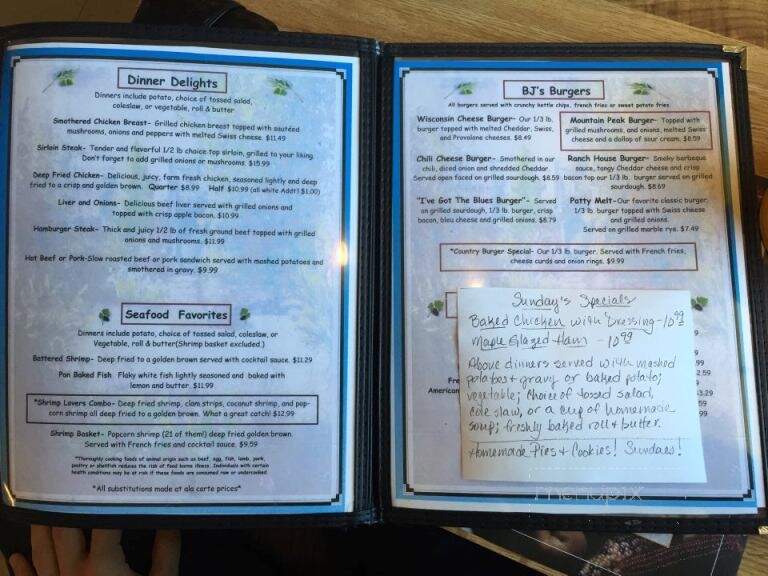 Dinner Delights
Dinners include potato, choice of tossed salad,
coleslaw, or vegetable, roll & butter
Smothered Chicken Breast- Grilled chicken breast topped with sauteed
mushrooms, onions and peppers with melted Swiss cheese. $11.49
Sirloin Steak- Tender and flavorful 1/2 lb choice top sirloin, grilled to your liking.
Don't forget to add grilled onions or mushrooms. $15.99
Deep Fried Chicken- Delicious, juicy, farm fresh chicken, seasoned lightly and deep
fried to a crisp and golden brown. Quarter $8.99 Half $10.99 (all white Add't! $1.00)
Liver and Onions- Delicious beef liver served with grilled onions and
topped with crisp apple bacon. $10.99
Hamburger Steak- Thick and juicy 1/2 lb of fresh ground beef topped with grilled
onions and mushrooms. $11.99
Hot Beef or Pork-Slow roasted beef or pork sandwich served with mashed potatoes and
smothered in gravy. $9.99
Seafood Favorites
Dinners include potato, choice of tossed salad, coleslaw, or
Vegetable, roll & butter(Shrimp basket excluded.)
Battered Shrimp- Deep fried to a golden brown served with cocktail sauce. $11.29
Pan Baked Fish Flaky white fish lightly seasoned and baked with
lemon and butter. $11.99
*Shrimp Lovers Combo- Deep fried shrimp, clam strips, coconut shrimp, and pop-
corn shrimp all deep fried to a golden brown. What a great catch! $12.99
Shrimp Basket- Popcorn shrimp (21 of them!) deep fried golden brown.
Served with French fries and cocktail sauce. $9.59
*Thoroughly cooking foods of animal origin such as beef, egg, fish, lamb, pork,
poultry or shellfish reduces the risk of food borne illness. Individuals with certain
health conditions may be at risk if these foods are consumed raw or undercooked.
*All substitutions made at ala carte prices*
BJ's Burgers
All burgers served with crunchy kettle chips, french fries or sweet potato fries.
Wisconsin Cheese Burger- Our 1/3 lb.
burger topped with melted Cheddar, Swiss,
and Provalone cheeses. $8.49
Mountain Peak Burger- Topped with
grilled mushrooms, and onions, melted Swiss
cheese and a dollop of sour cream. $8.59
Chili Cheese Burger- Smothered in our
chili, diced onion and shredded Cheddar.
Served open faced on grilled sourdough. $8.59
Ranch House Burger- Smoky barbeque
sauce, tangy Cheddar cheese and crisp
bacon top our 1/3 lb. burger served on grilled
sourdough. $8.69
"I've Got The Blues Burger"- Served
on grilled sourdough, 1/3 lb. burger, crisp
bacon, bleu cheese and grilled onions. $8.79
Patty Melt-Our favorite classic burger,
1/3 lb. burger topped with Swiss cheese
and grilled onions.
Served on grilled marble rye. $7.49
*Country Burger Special- Our 1/3 lb. burger. Served with French fries,
cheese curds and onion rings. $9.99
Sunday's Specials
Baked Chicken with Dressing - 10.99
Maple Glazed Ham - 10.99
Above dinners served with mashed
potatoes + gravy or baked potato;
vegetable; choice of tossed salad,
cole slaw, or a cup of homemade
soup; freshly baked roll + butter.
Homemade Pies + Cookies! Sundaes!
Fre
American
.99
2.59
.99
$3.29
.59
menupix